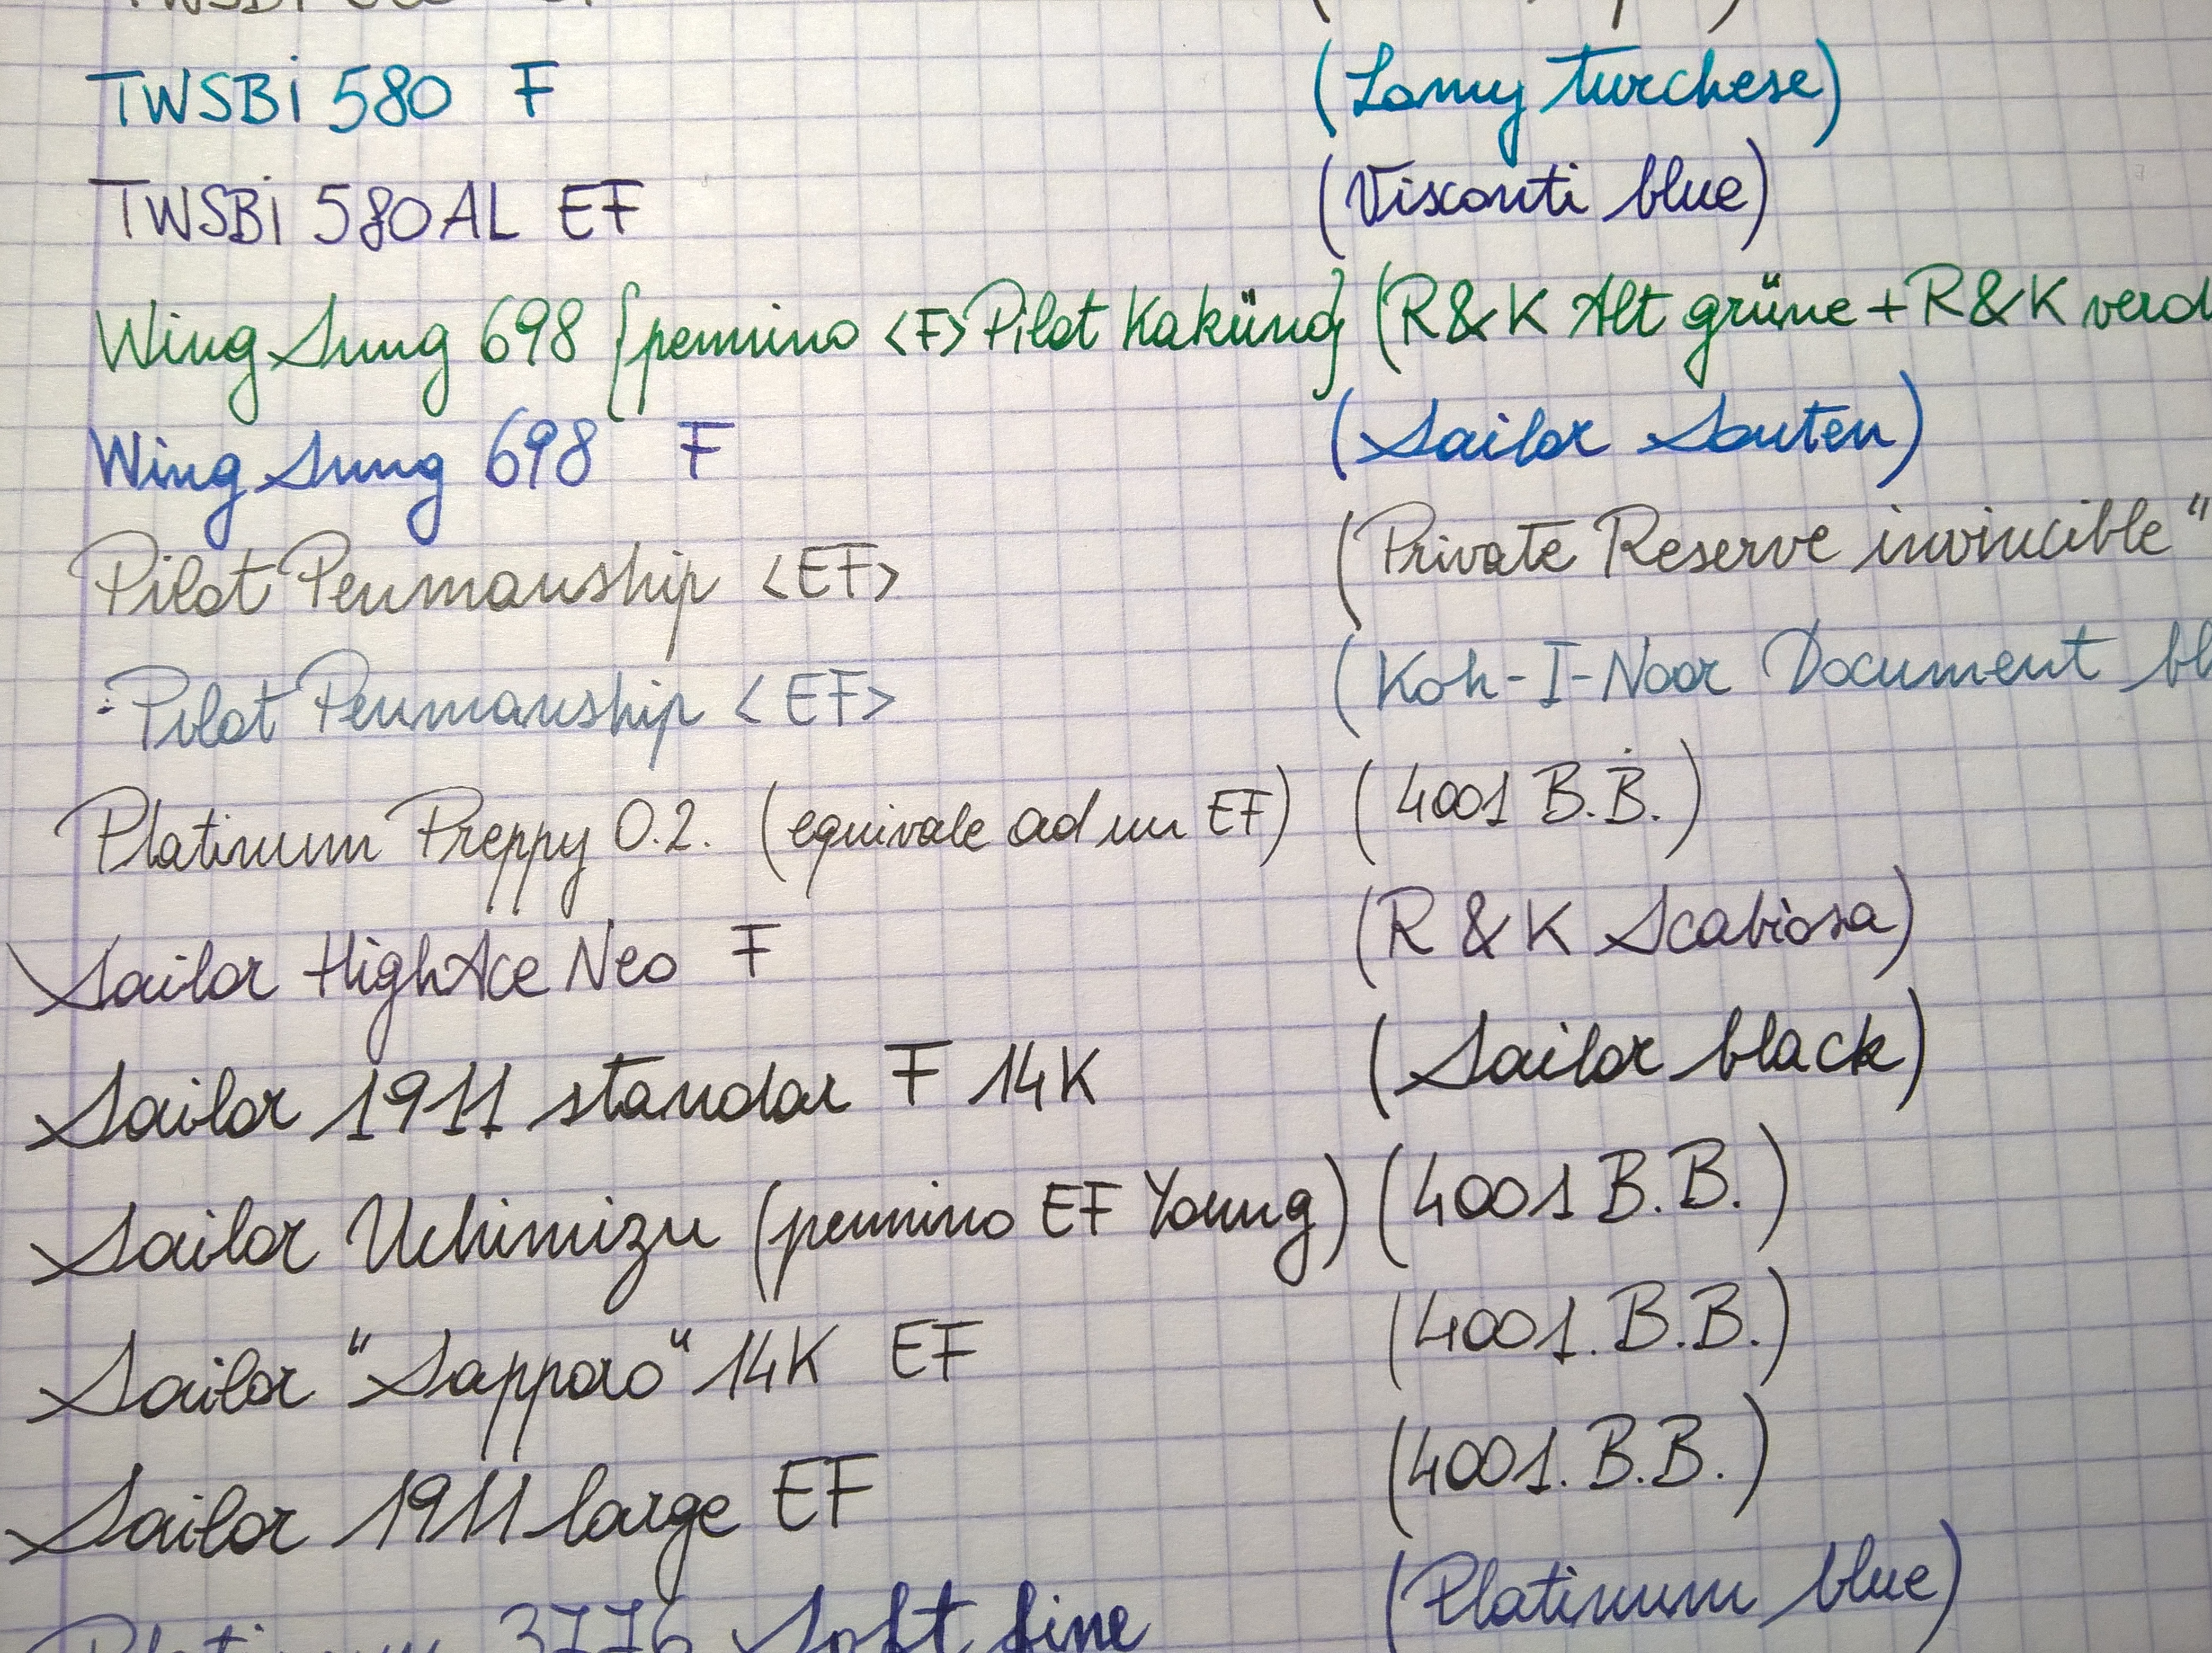 TWSBi 580 F (Lamy turchese)
TWSBi 580AL EF (Visconti blue)
Wing Sung 698 {pennino <F> Pilot Kaküno} (R&K Alt grüne + R&K verd
Wing Sung 698 F (Sailor Souten)
Pilot Penmanship <EF> (Private Reserve invincible"
Pilot Penmanship <EF> (Koh-I-Noor Document bl
Platinum Preppy 0.2. (equivale ad un EF) (4001 B.B.)
Sailor HighAce Neo F (R & K Scabiosa)
Sailor 1911 standar F 14K (Sailor black)
Sailor Uchimizu (pennino EF Young) (4001 B.B.)
Sailor "Sapporo" 14K EF (4001. B.B.)
Sailor 1911 large EF (4001. B.B.)
Platinum 3776 Soft fine (Platinum blue)